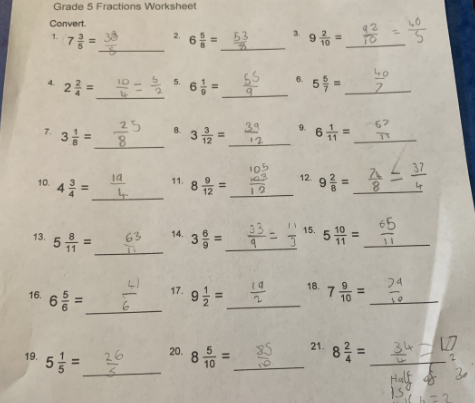 Grade 5 Fractions Worksheet
Convert.
1. 7 3/5 = 38/5 2. 6 5/8 = 53/8 3. 9 2/10 = 92/10 = 40/5
4. 2 2/4 = 10/4 = 5/2 5. 6 1/9 = 55/9 6. 5 5/7 = 40/7
7. 3 1/8 = 25/8 8. 3 3/12 = 39/12 9. 6 1/11 = 67/11
10. 4 3/4 = 19/4 11. 8 9/12 = 105/12 12. 9 2/8 = 74/8 = 37/4
13. 5 8/11 = 63/11 14. 3 6/9 = 33/9 = 11/3 15. 5 10/11 = 65/11
16. 6 5/6 = 41/6 17. 9 1/2 = 19/2 18. 7 9/10 = 79/10
19. 5 1/5 = 26/5 20. 8 5/10 = 85/10 21. 8 2/4 = 34/4 = 17/2
Half of
is